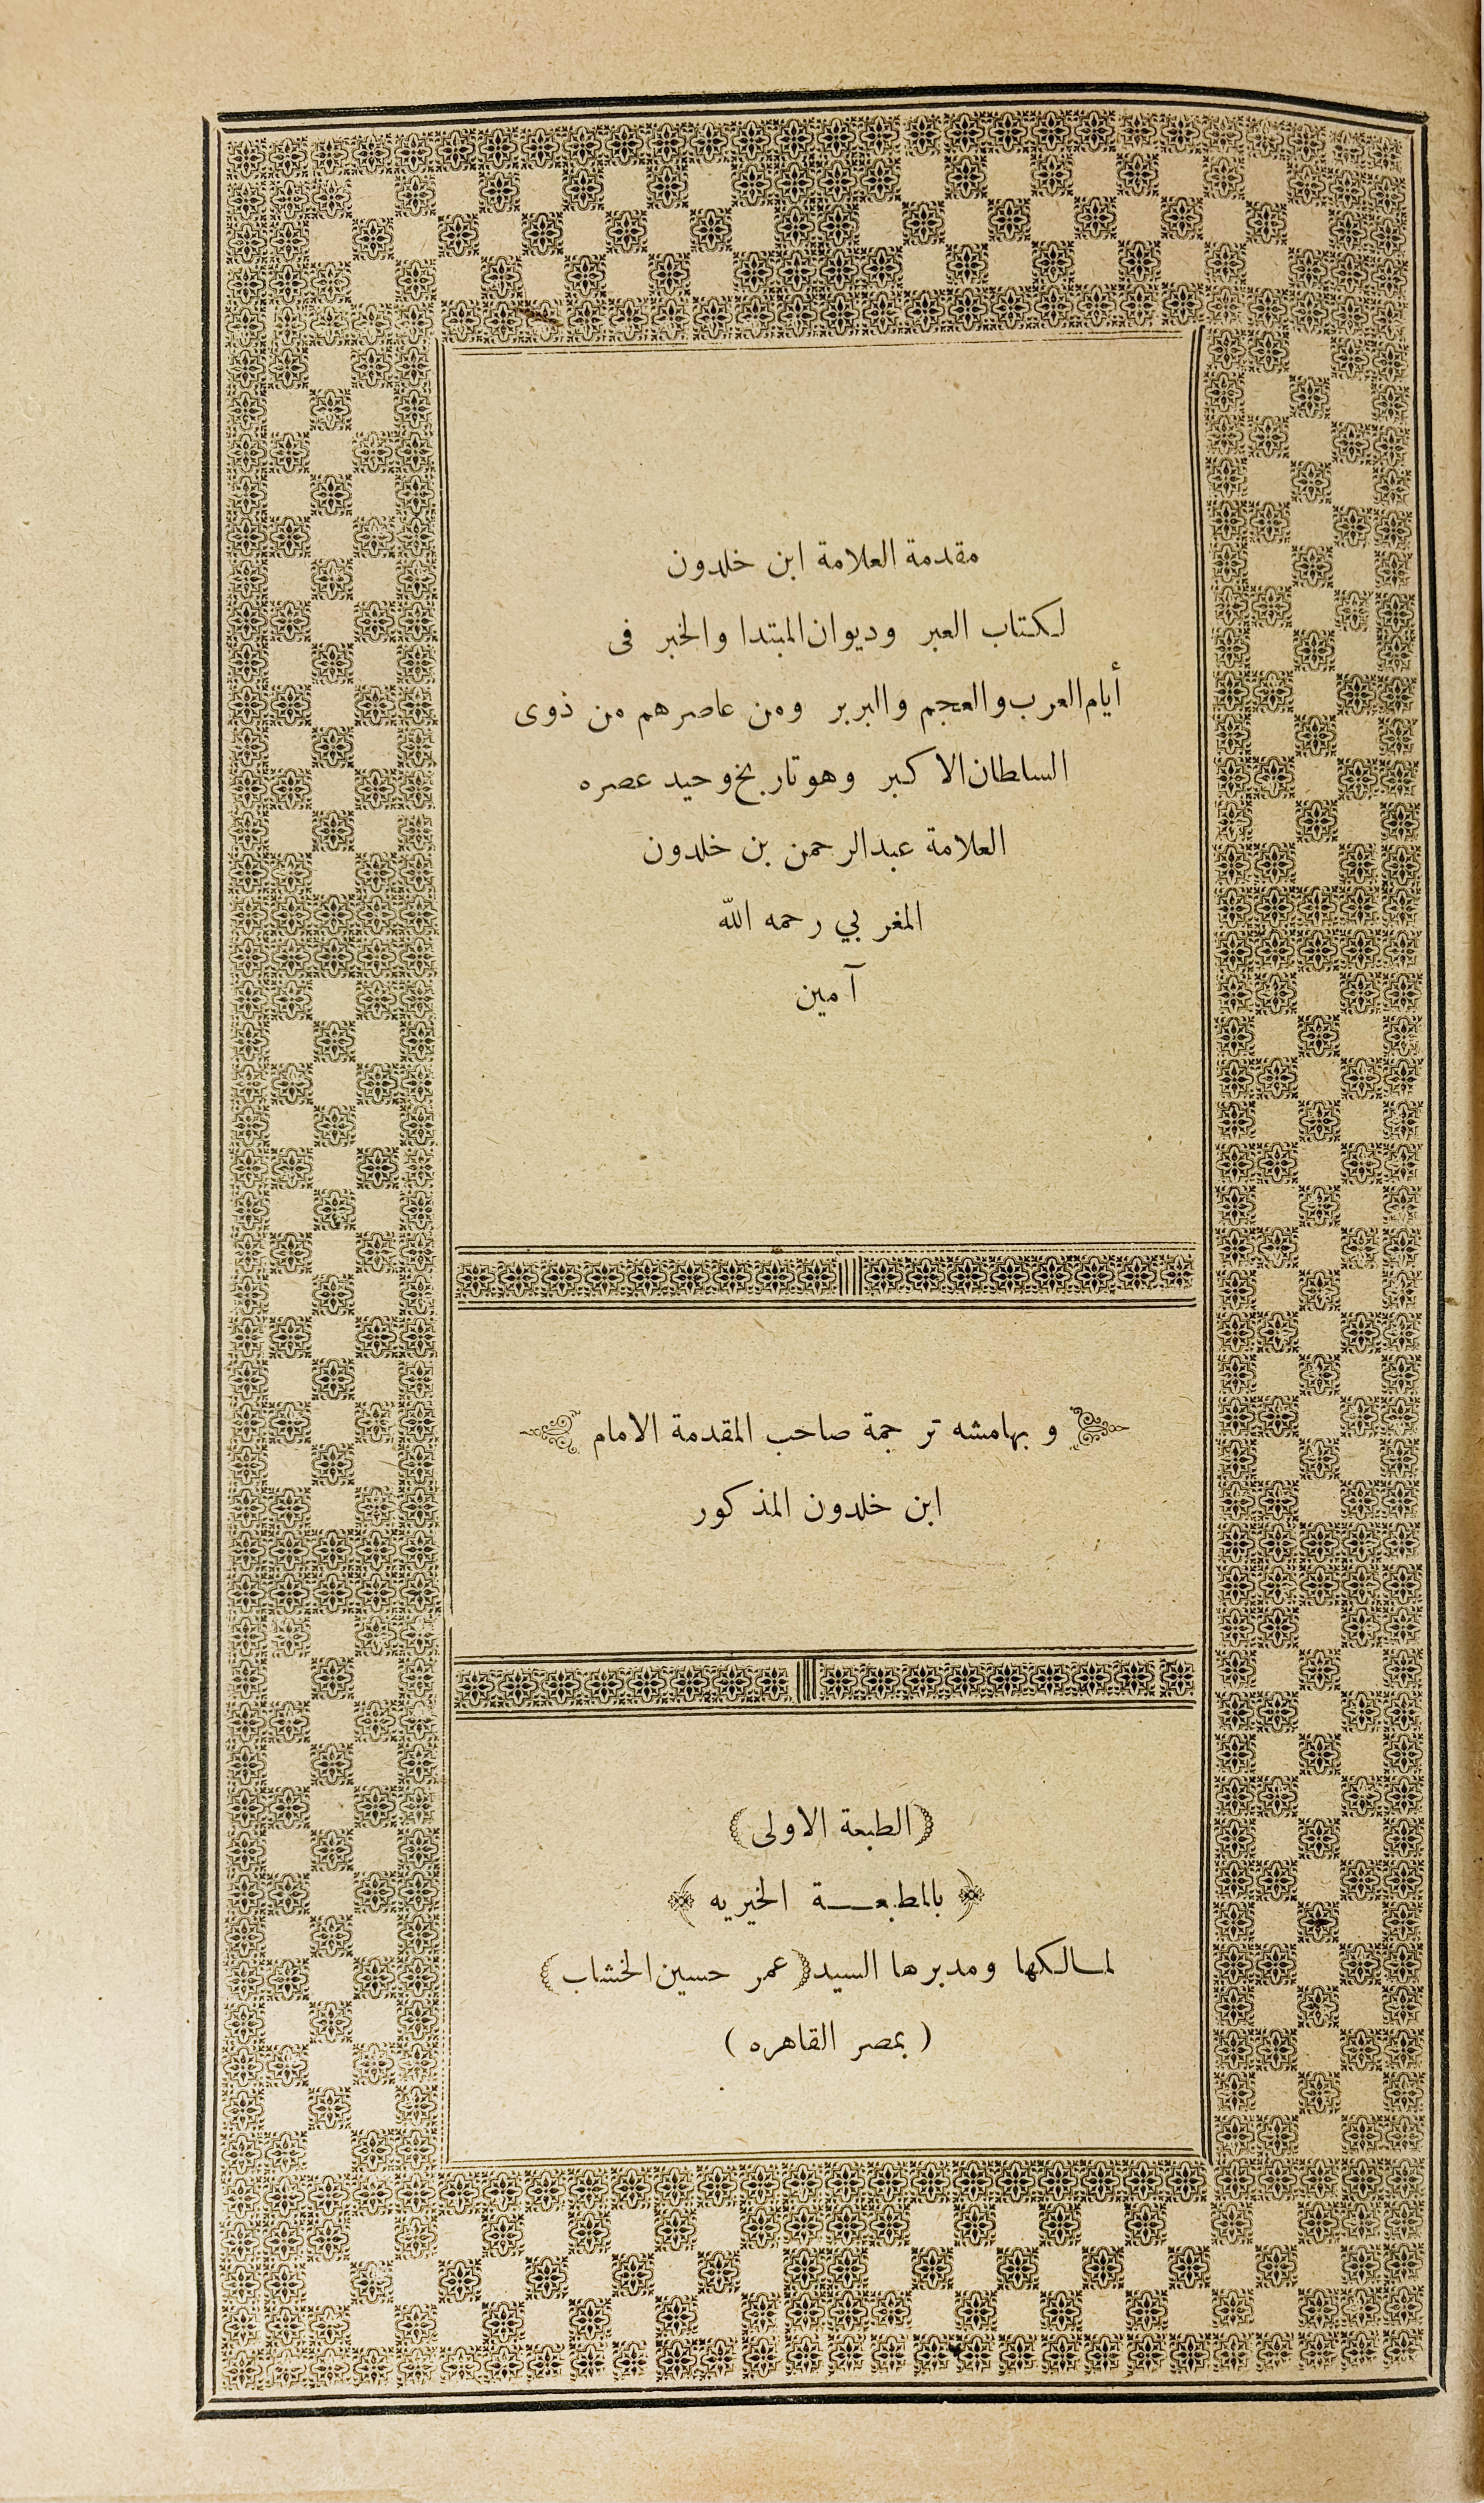 مقدمة العلامة ابن خلدون
لكتاب العبر وديوان المبتدا والخبر فى
أيام العرب والعجم والبربر ومن عاصرهم من ذوى
السلطان الاكبر وهو تاريخ وحيد عصره
العلامة عبد الرحمن بن خلدون
المغربي رحمه الله
آمين
وبهامشه ترجمة صاحب المقدمة الامام
ابن خلدون المذكور
(الطبعة الاولى)
﴿ بالمطبعــة الخيريه ﴾
لمالكها ومديرها السيد (عمر حسين الخشاب)
( بمصر القاهره )